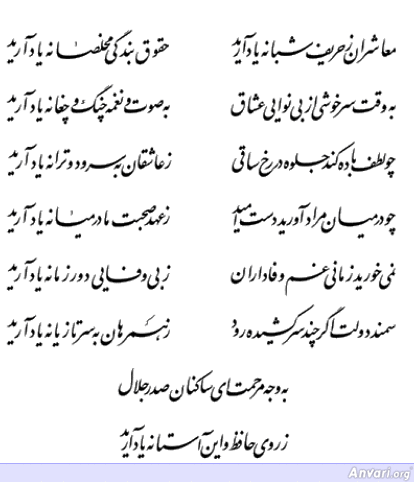 معاشران ز حریف شبانه یاد آرید
حقوق بندگی مخلصانه یاد آرید
به وقت سرخوشی از بی نوایی عشاق
به صوت و نغمه چنگ و چغانه یاد آرید
چو لطف باده کند جلوه در رخ ساقی
ز عاشقان به سرود و ترانه یاد آرید
چو در میان مراد آورید دست امید
ز عهد صحبت ما در میانه یاد آرید
نمی خورید زمانی غم وفاداران
ز بی وفایی دور زمانه یاد آرید
سمند دولت اگر چند سرکشیده رود
ز همرهان به سر تازیانه یاد آرید
به وجه مرحمت ای ساکنان صدر جلال
ز روی حافظ و این آستانه یاد آرید
Anvari.org